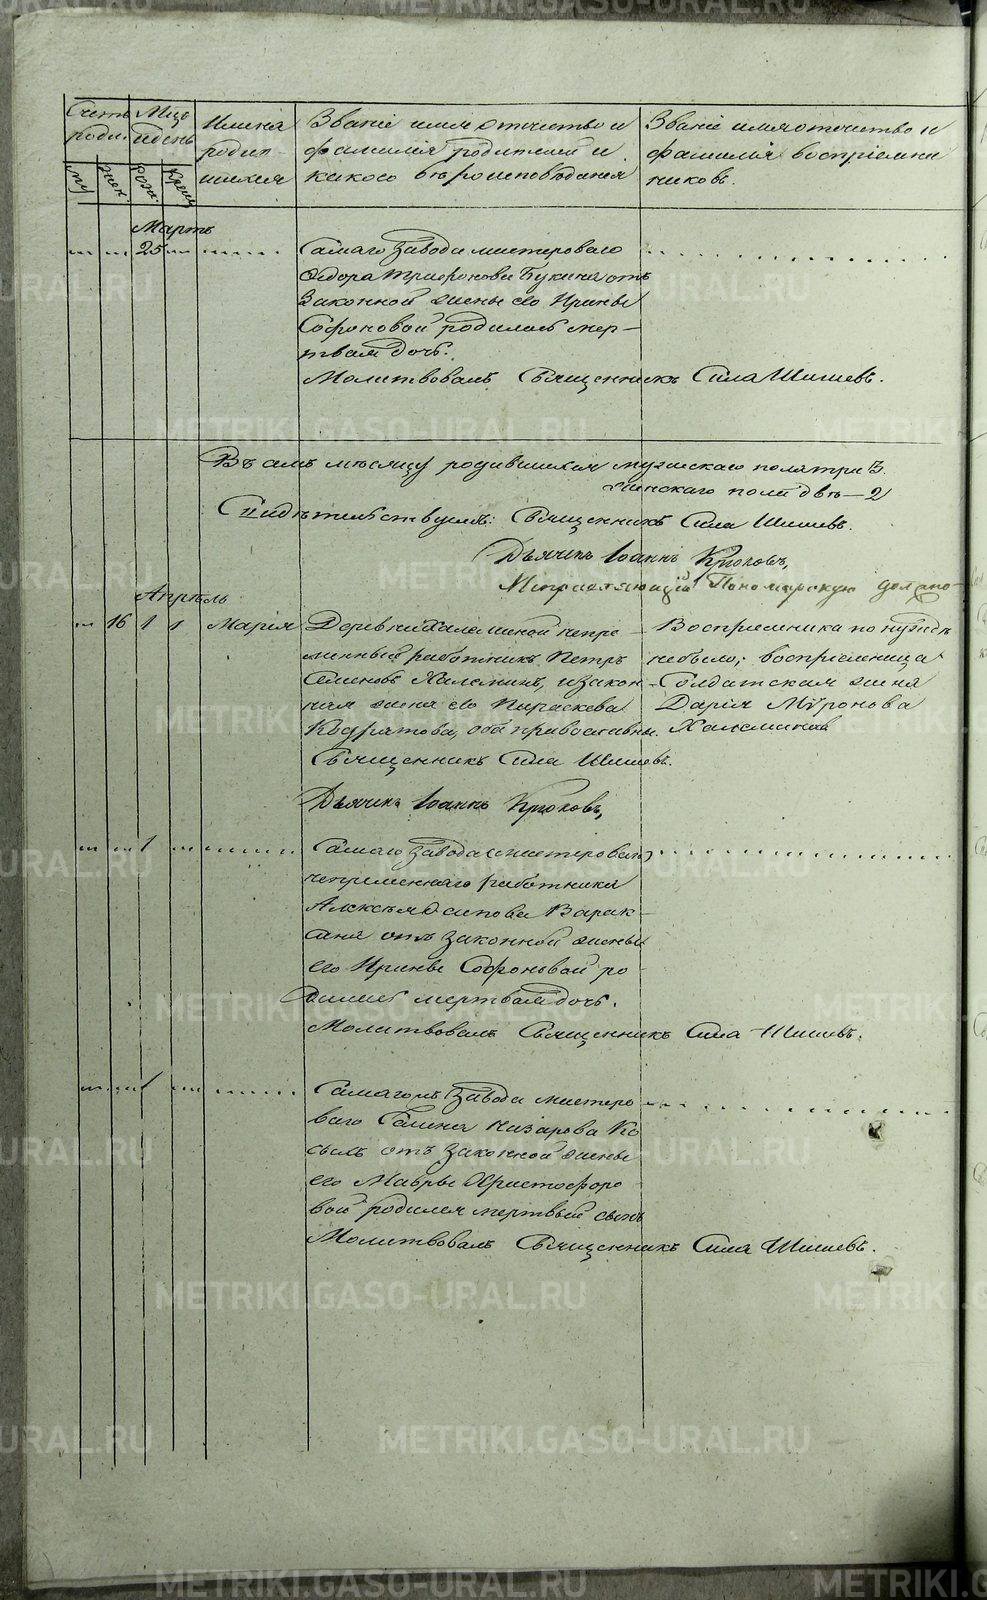 METRIKI.GASO-URAL.RU
Счетъ родив.
Мцъ и день
Имена родив-шихся
Званіе имя отчество и
фамилія родителей и
какого вѣроисповѣданія
Званіе имя отчество и
фамилія воспріемни
ковъ.
му.
жен.
рож.
крещ.
Мартъ
25
Самаго завода мастероваго
Ѳедора Трифонова Букина отъ
Законной жены его Ирины
Софоновой родилась мер-
твая дочь.
Молитвовалъ Священникъ Сила Шишевъ.
Въ ... мѣсяцѣ родившихся мужескаго пола три 3.
женскаго пола двѣ — 2
Свидѣтельствуемъ: Священникъ Сила Шишевъ.
Дьячекъ Іоаннъ Крюковъ,
Исправляющій Пономарскую должно-
Апрѣль
16 1 1 Марія
Деревни Халеминой непре-
менный работникъ Петръ
Семеновъ Халеминъ, и закон-
ная жена его Параскева
Кодратова, оба православны.
Воспріемника по нуждѣ
небыло; воспріемница
Солдатская жена
Дарія Мѵронова
Халемина
Священникъ Сила Шишевъ.
Дьячекъ Іоаннъ Крюковъ,
1
Самаго завода мастероваго
непременнаго работника
Алексѣя Осипова Варак-
сина отъ законной жены
его Ирины Софоновой ро
дилась мертвая дочь.
Молитвовалъ Священникъ Сила Шишевъ.
1
Самаго завода мастеро
ваго Галина Назарова Ко
... отъ законной жены
его Мавры Христофоро
вой родился мертвый сынъ
Молитвовалъ Священникъ Сила Шишевъ.